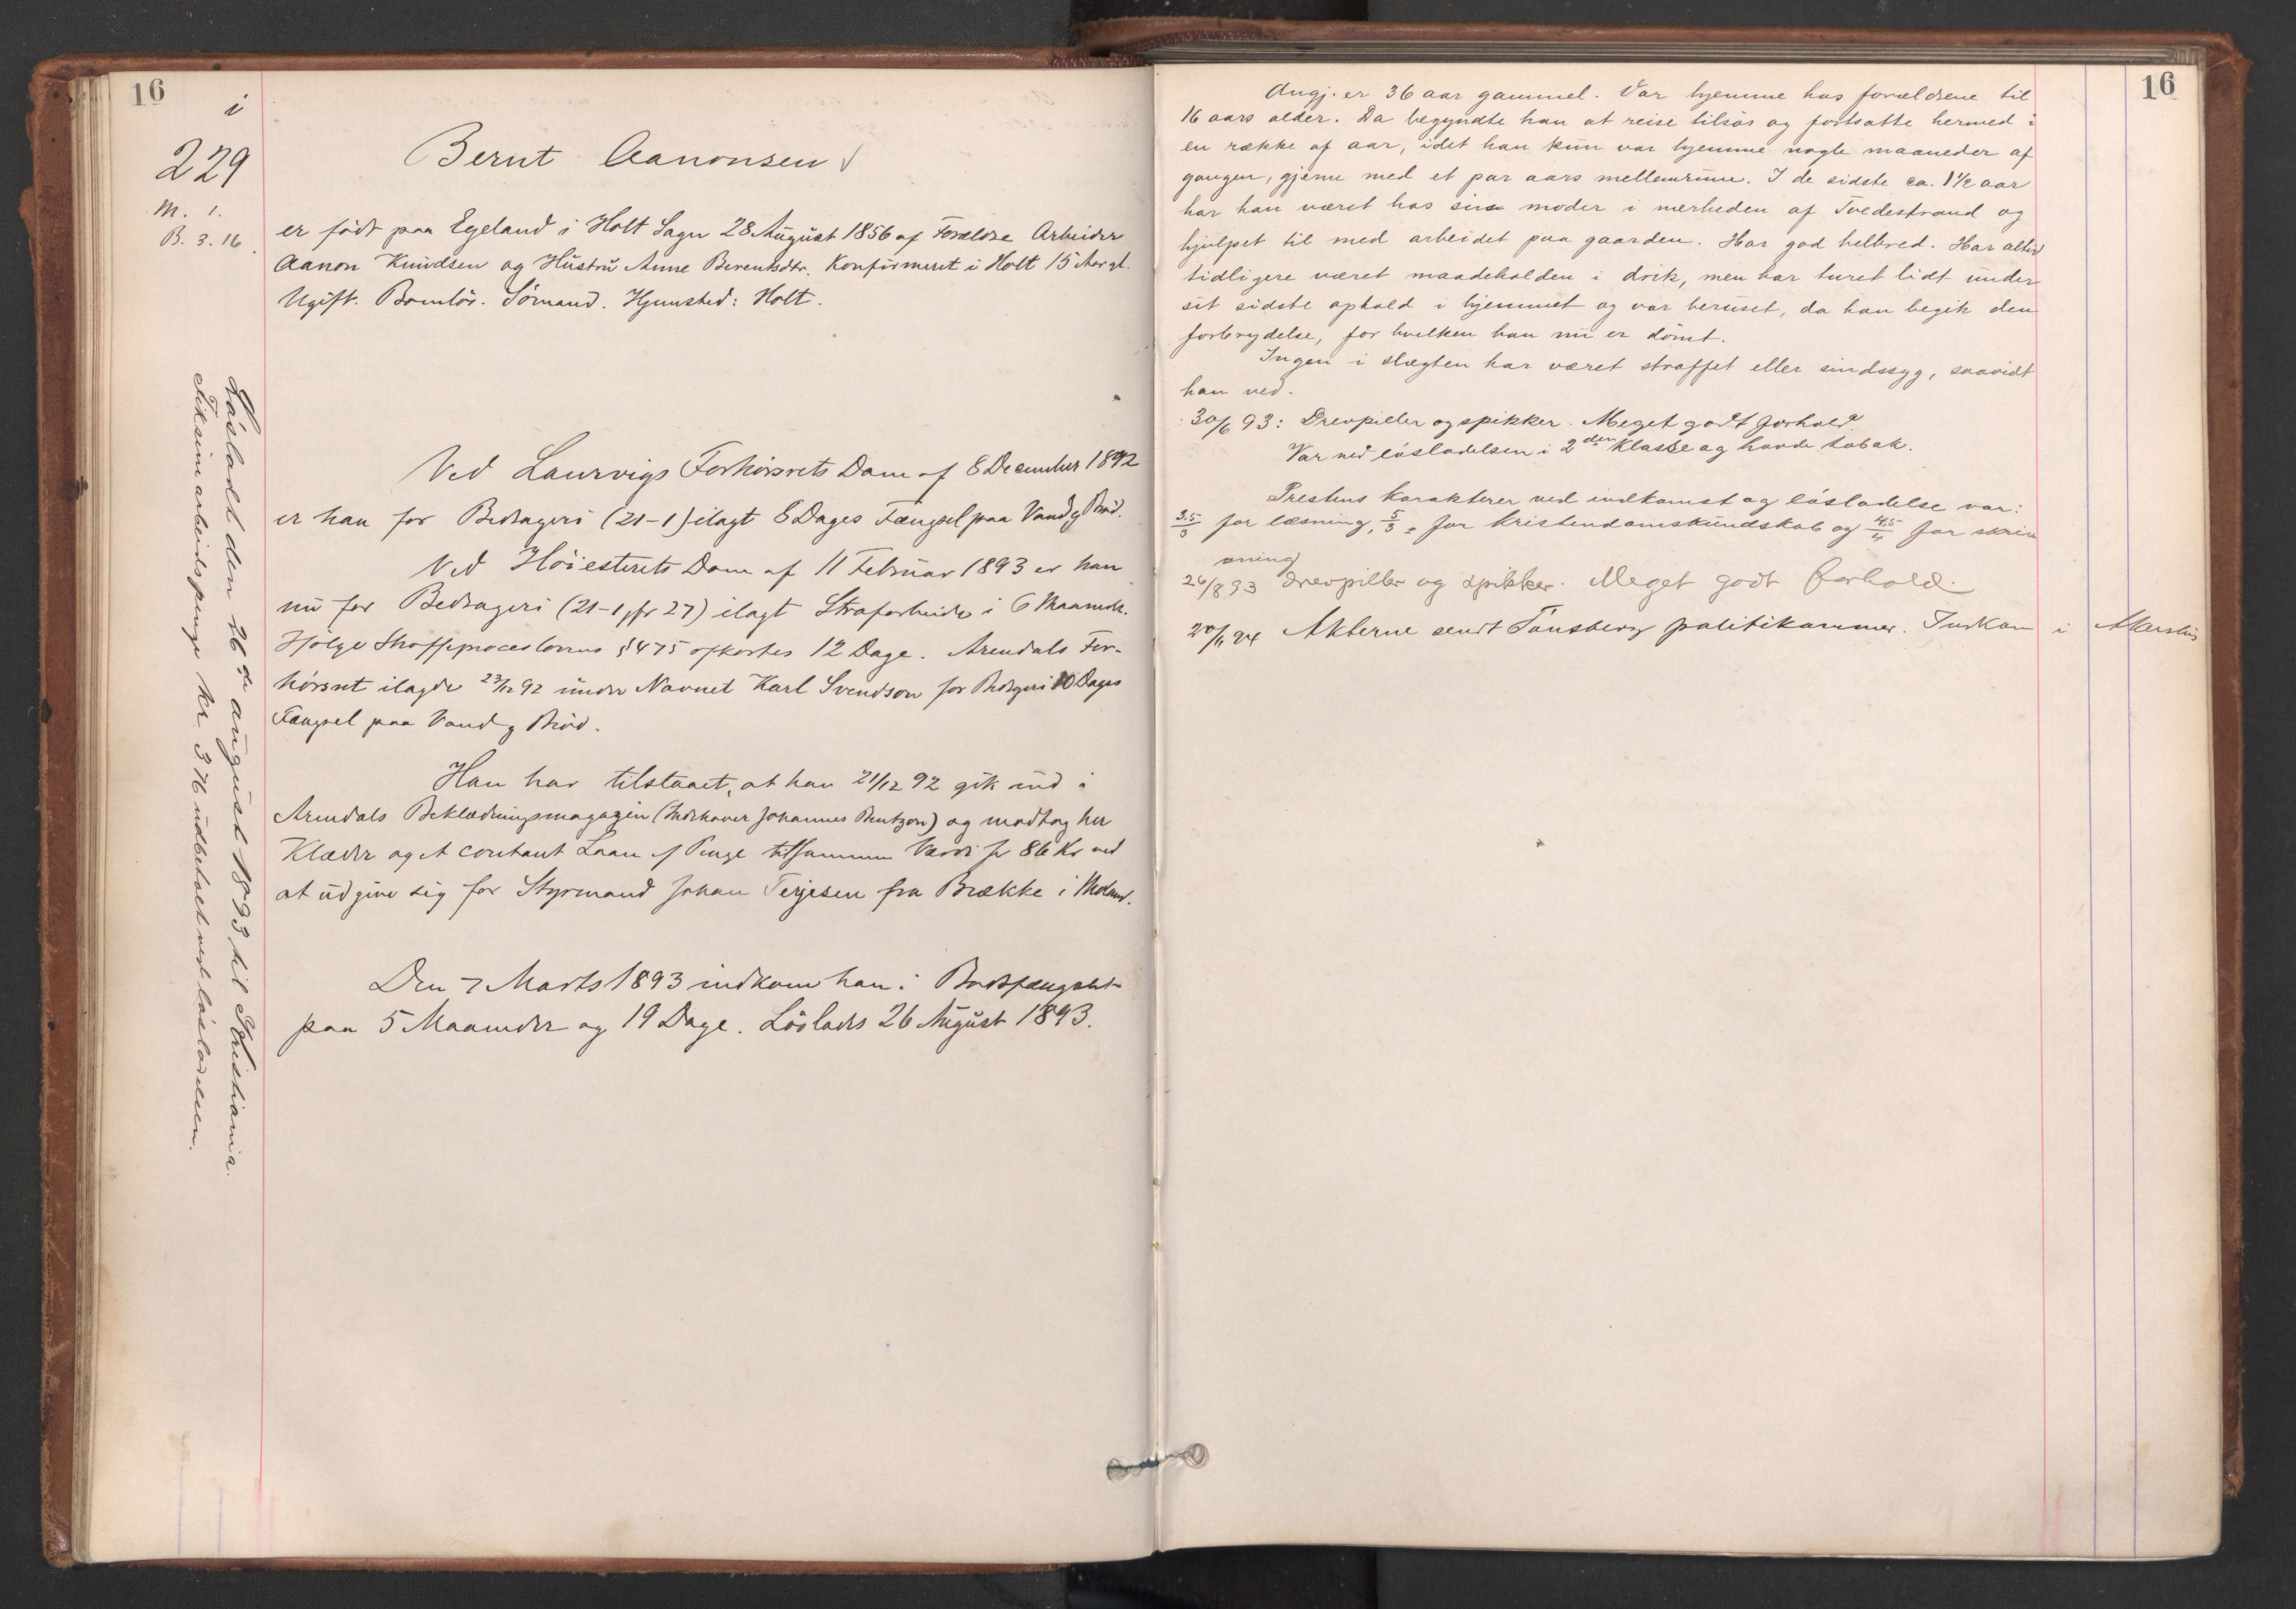 16
i
229
M. 1.
B. 3. 16
Bernt Aanonsen
er födt paa Egeland i Holt Sogn 28 August 1856 af Forældre Arbeider
Aanon Knudsen og Hustru Anne Berentsdtr. Konfirmeret i Holt 15 Aar gl.
Ugift. Barnlös. Sömand. Hjemsted: Holt.
Ved Laurvigs Forhörsrets Dom af 8 December 1892
er han for Bedrageri (21-1) ilagt 8 Dages Fængsel paa Vand og Bröd.
Ved Höiesterets Dom af 11 Februar 1893 er han
nu for Bedrageri (21-1, jfr 27) ilagt Strafarbeide i 6 Maaneder.
Ifölge Straffeproceslovens § 475 afkortes 12 Dage. Arendals For-
hörsret ilagde 23/12 92 under Navnet Karl Svendsen for Bedrageri 10 Dages
Fængsel paa Vand og Bröd.
Han har tilstaaet, at han 21/12 92 gik ind i
Arendals Beklædningsmagazin (Indehaver Johannes Bentzon) og modtog her
Klæder og et contant Laan af Penge tilsammen Værdi 86 Kr ved
at udgive sig for Styrmand Johan Terjesen fra Brække i Moland.
Den 7 Marts 1893 indkom han i Bodsfængslet
paa 5 Maaneder og 19 Dage. Löslades 26 August 1893.
Lösladt den 26de august 1893 til Kristiania.
Fik sine arbeidspenge kr 3.76 udbetalt ved lösladelsen.
16
Angj. er 36 aar gammel. Var hjemme hos forældrene til
16 aars alder. Da begyndte han at reise tilsös og fortsatte hermed i
en række af aar, idet han kun var hjemme nogle maaneder af
gangen, gjerne med et par aars mellemrum. I de sidste ca. 1½ aar
har han været hos sin moder i nærheden af Tvedestrand og
hjulpet til med arbeidet paa gaarden. Har god helbred. Har altid
tidligere været maadeholden i drik, men har turet lidt under
sit sidste ophold i hjemmet og var beruset, da han begik den
forbrydelse, for hvilken han nu er dömt.
Ingen i slægten har været straffet eller sindssyg, saavidt
han ved.
30/6 93: Drevpiller og spikker. Meget godt forhold.
Var ved lösladelsen i 2den klasse og havde tobak.
Prestens karakterer ved indkomst og lösladelse var:
3.5/3 for læsning, 5/3 for kristendomskundskab og 4.5/4 for skriv
ning
26/8 93 drevpiller og spikker. Meget godt forhold.
20/11 24 Akterne sendt Tönsberg politikammer. Indkom i Akershus